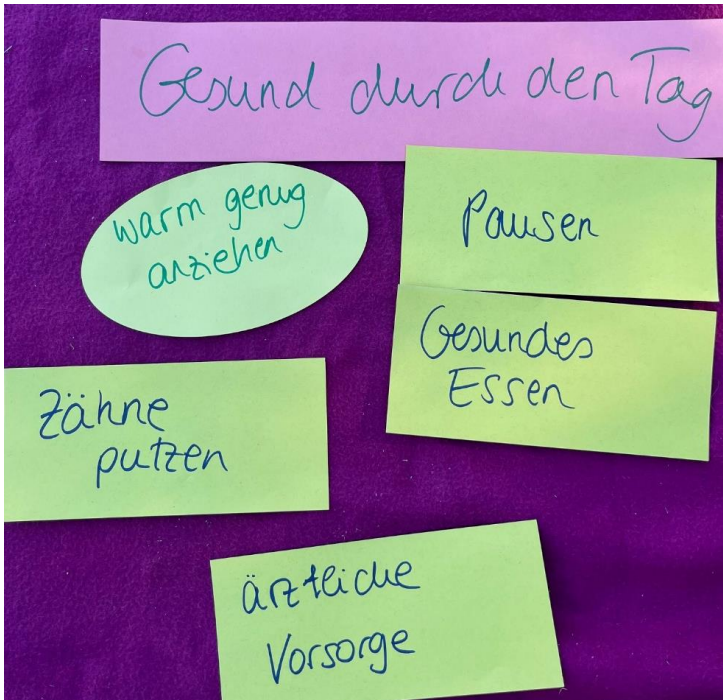 Gesund durch den Tag
warm genug
anziehen
Pausen
Gesundes
Essen
Zähne
putzen
ärztliche
Vorsorge